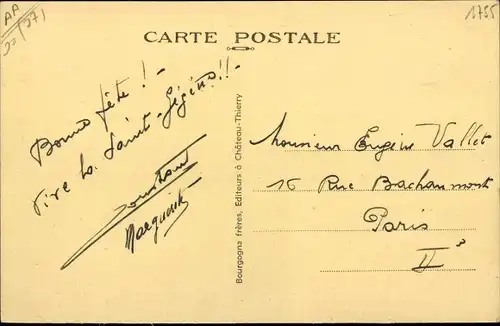 AA
1755
CARTE POSTALE
Bonne fête ! -
Vive la Saint-Eugène !! -
Constant
Marguerite
Bourgogne frères, Editeurs à Château-Thierry
Monsieur Eugène Vallet
16 Rue Bachaumont
Paris
IIe